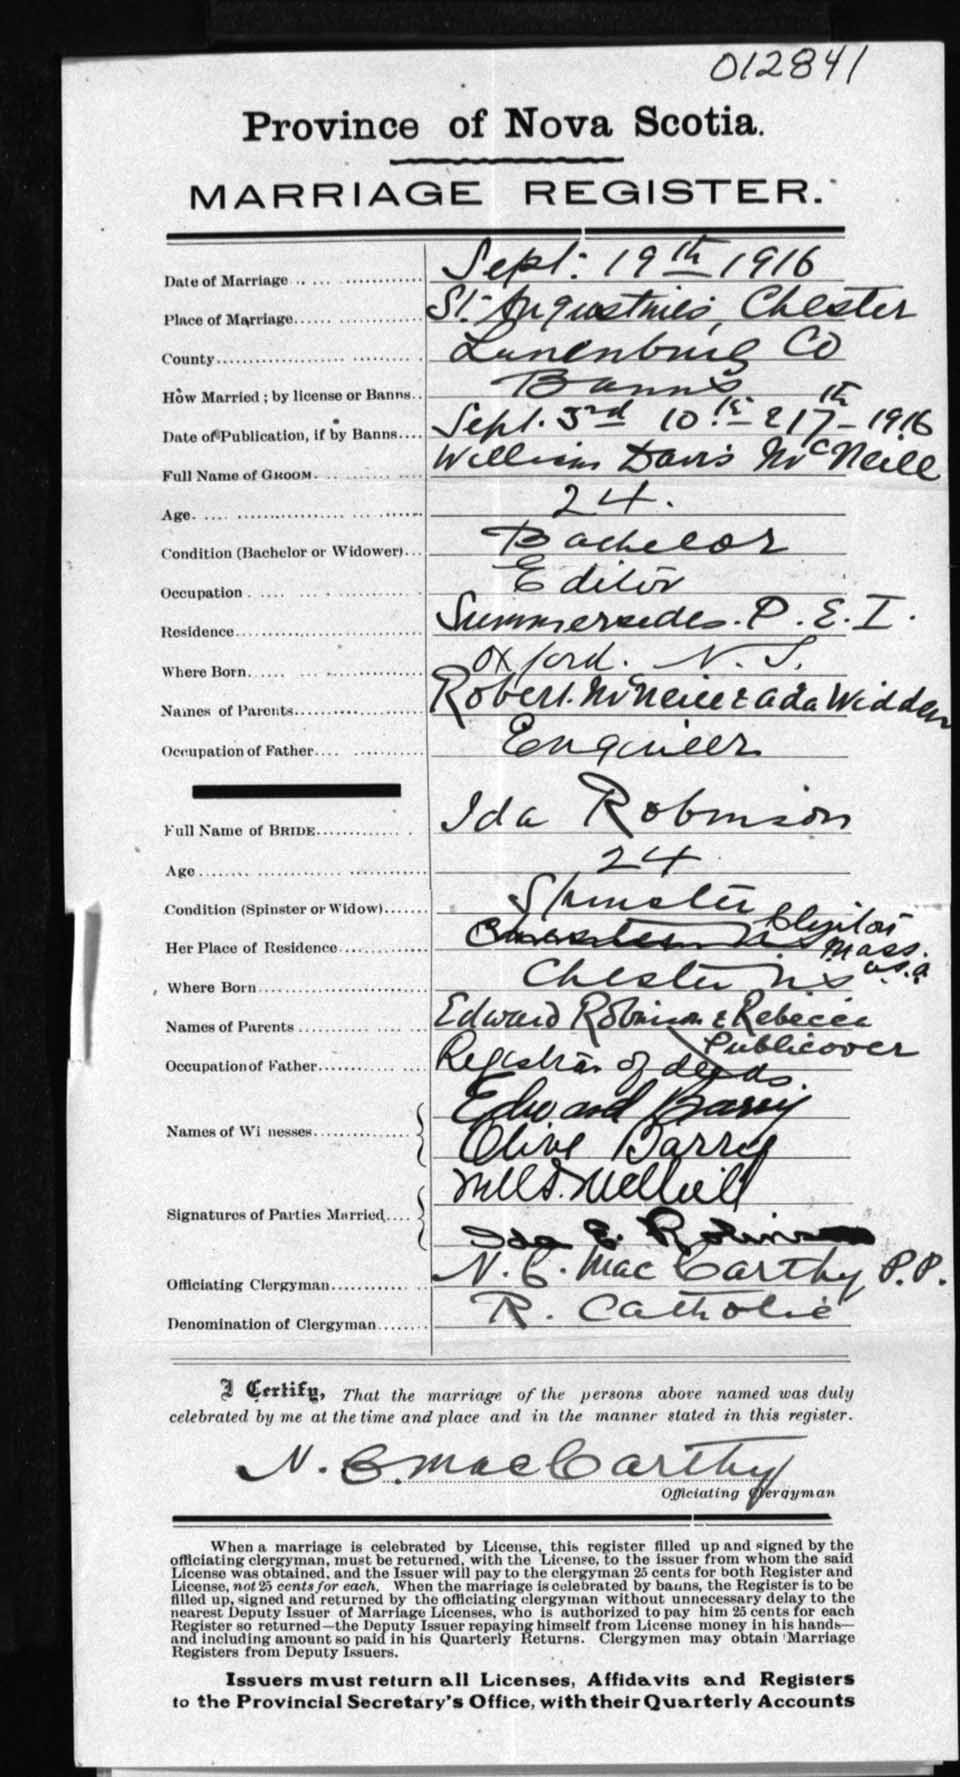 012841
Province of Nova Scotia.
MARRIAGE REGISTER.
Date of Marriage Sept: 19th 1916
Place of Marriage St. Augustines, Chester
County Lunenburg Co
How Married; by license or Banns Banns
Date of Publication, if by Banns Sept. 3rd 10th & 17th - 1916
Full Name of GROOM William Davis McNeill
Age 24.
Condition (Bachelor or Widower) Bachelor
Occupation Editor
Residence Summerside. P. E. I.
Where Born Oxford. N. S.
Names of Parents Robert. McNeill & Ada Widden
Occupation of Father Engineer
Full Name of BRIDE Ida Robinson
Age 24
Condition (Spinster or Widow) Spinster
Her Place of Residence Mass. U.S.A
Where Born Chester N S
Names of Parents Edward Robinson & Rebecca Publicover
Occupation of Father Registrar of deeds.
Names of Witnesses Edward Barry
Olive Barry
Signatures of Parties Married
Ida E. Robinson
Officiating Clergyman N. C. MacCarthy P.P.
Denomination of Clergyman R. Catholic
I Certify, That the marriage of the persons above named was duly
celebrated by me at the time and place and in the manner stated in this register.
N. C. MacCarthy
Officiating Clergyman
When a marriage is celebrated by License, this register filled up and signed by the
officiating clergyman, must be returned, with the License, to the issuer from whom the said
License was obtained, and the Issuer will pay to the clergyman 25 cents for both Register and
License, not 25 cents for each. When the marriage is celebrated by banns, the Register is to be
filled up, signed and returned by the officiating clergyman without unnecessary delay to the
nearest Deputy Issuer of Marriage Licenses, who is authorized to pay him 25 cents for each
Register so returned—the Deputy Issuer repaying himself from License money in his hands—
and including amount so paid in his Quarterly Returns. Clergymen may obtain Marriage
Registers from Deputy Issuers.
Issuers must return all Licenses, Affidavits and Registers
to the Provincial Secretary's Office, with their Quarterly Accounts